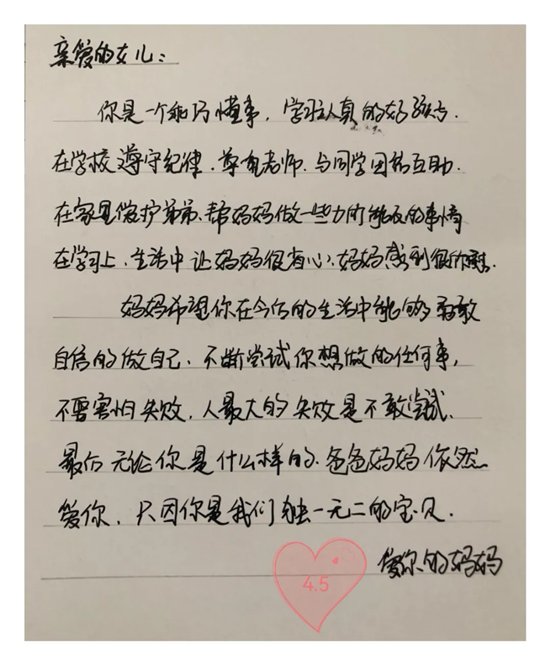 亲爱的女儿：
你是一个乖巧懂事，学习认真的好孩子.
在学校遵守纪律.尊重老师.与同学团结互助.
在家里爱护弟弟、帮妈妈做一些力所能及的事情
在学习上.生活中让妈妈很省心、妈妈感到很欣慰.
妈妈希望你在今后的生活中能够勇敢
自信的做自己.不断尝试你想做的任何事，
不要害怕失败，人最大的失败是不敢尝试.
最后无论你是什么样的.爸爸妈妈依然
爱你，只因你是我们独一无二的宝贝.
爱你的妈妈
4.5